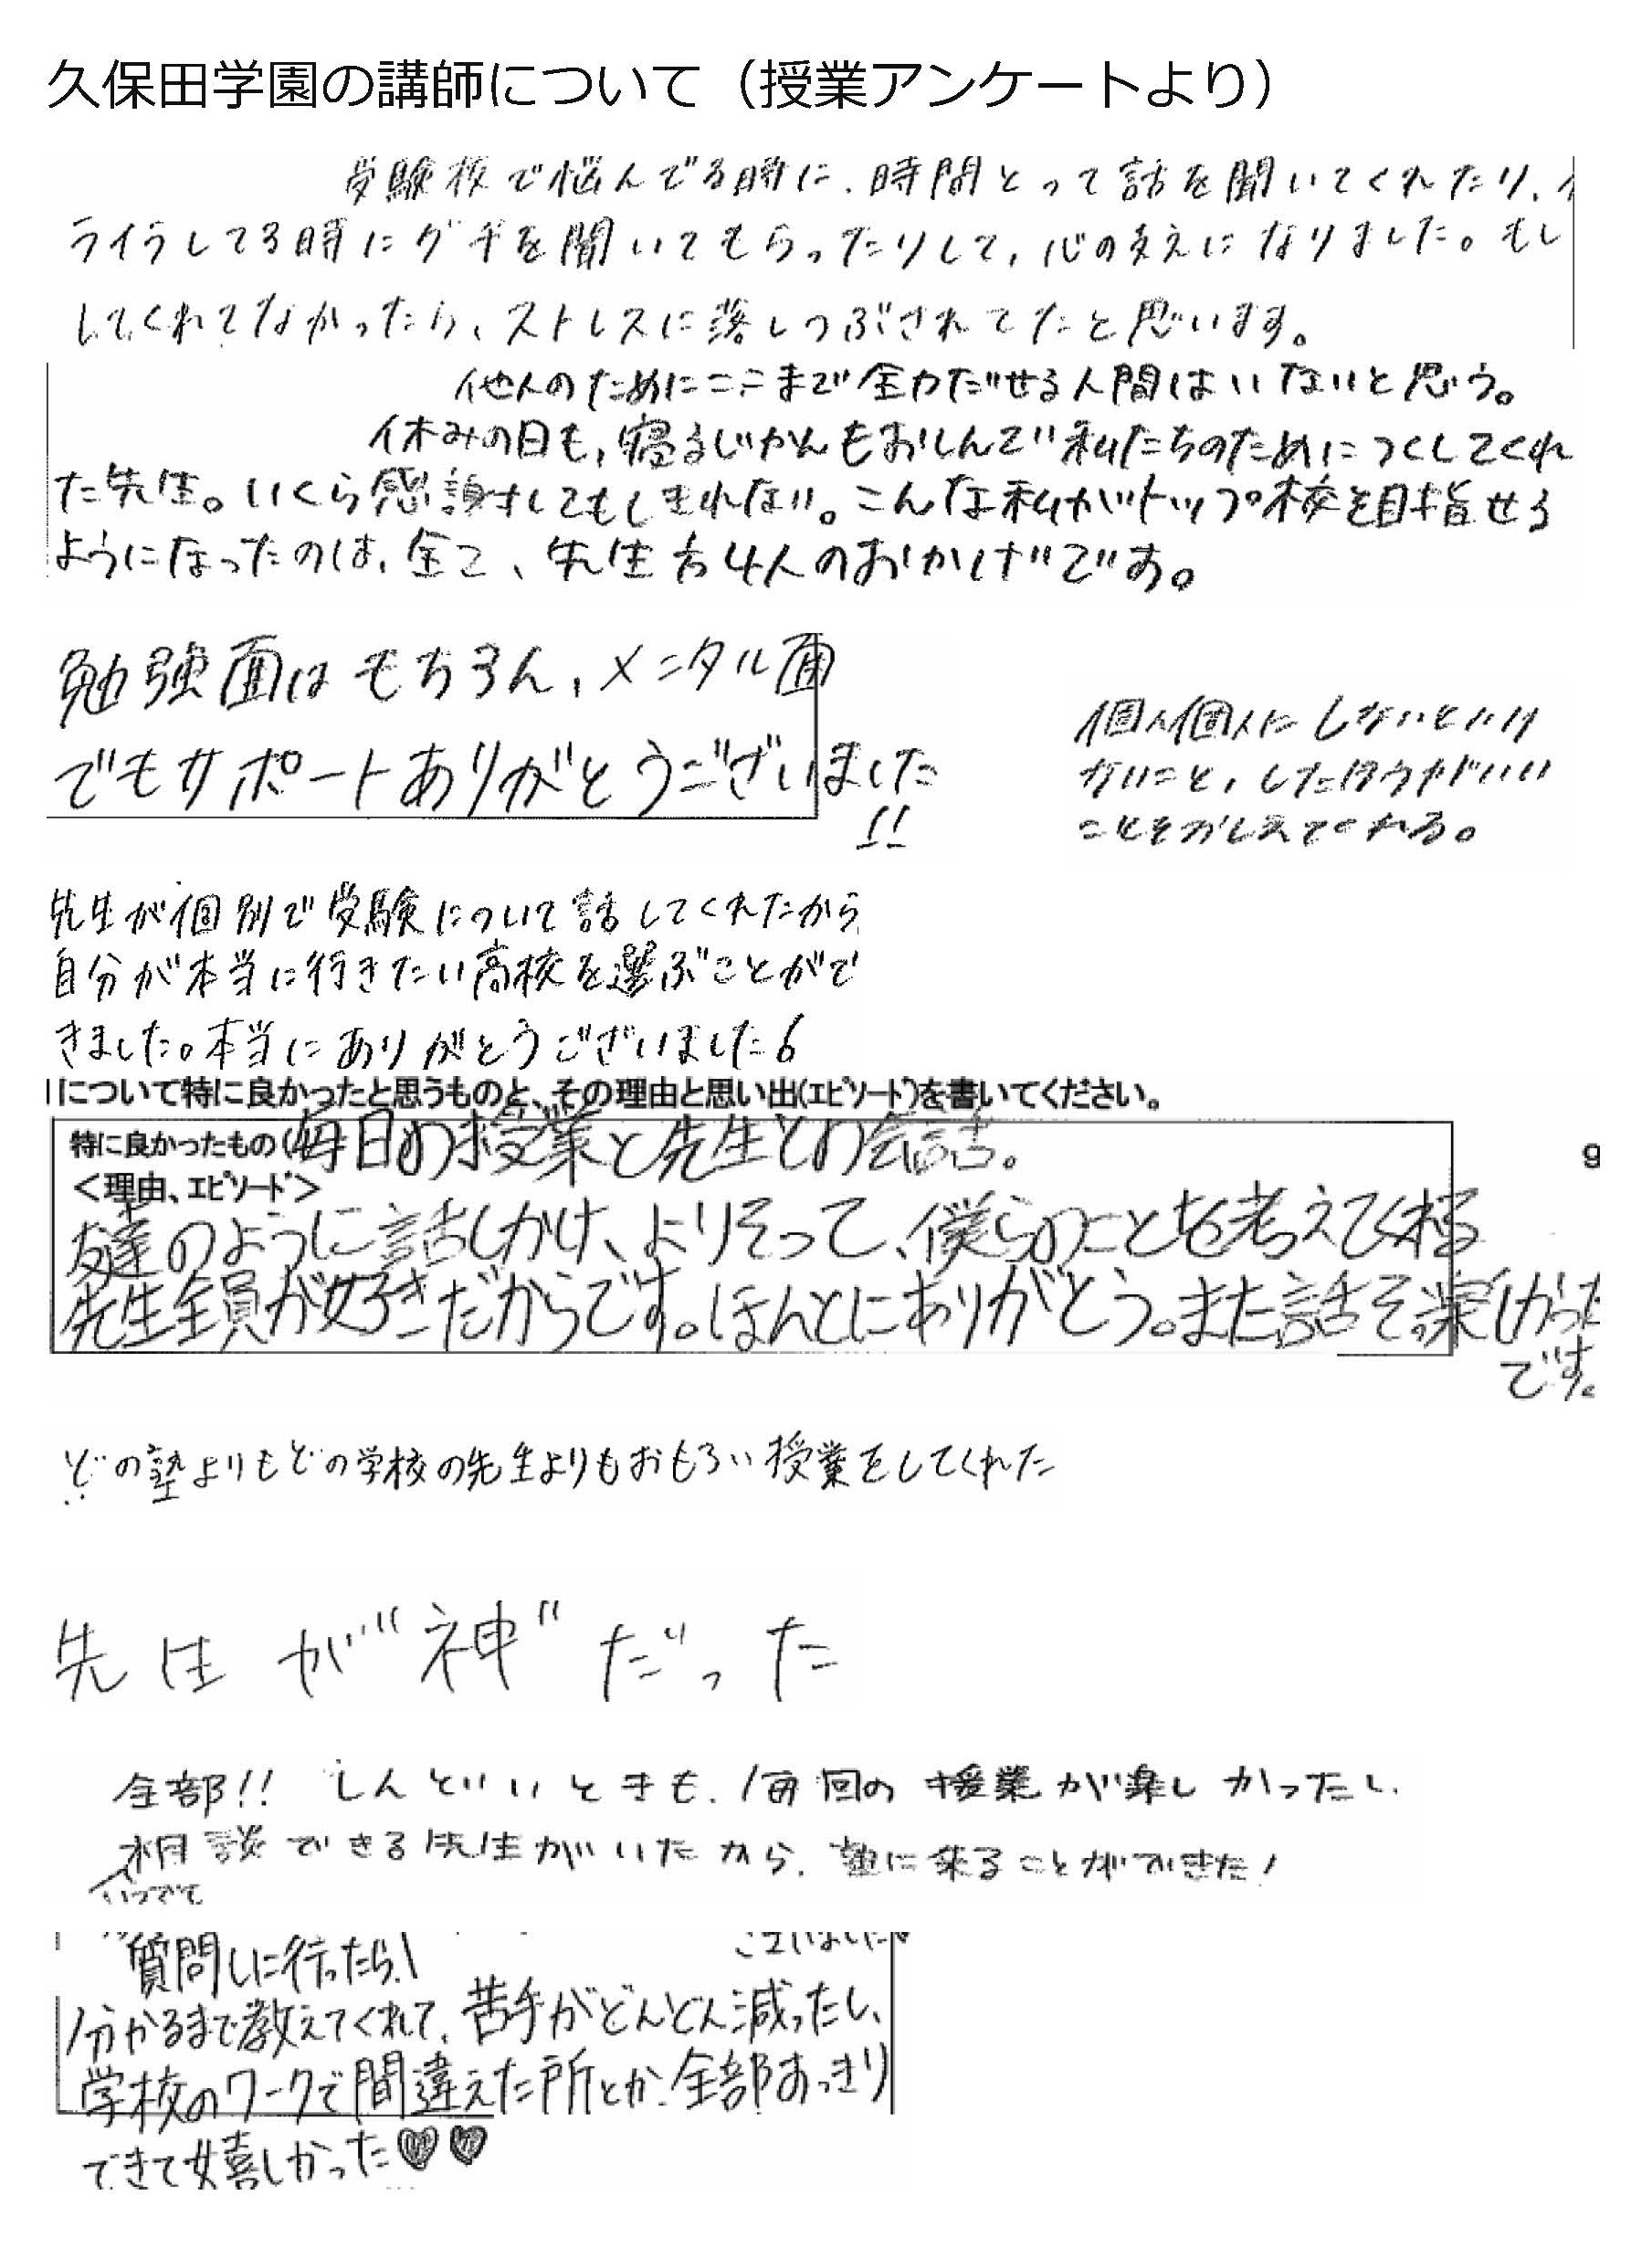 久保田学園の講師について（授業アンケートより）
受験校で悩んでる時に、時間とって話を聞いてくれたり、イ
ライラしてる時にグチを聞いてもらったりして、心の支えになりました。もし
してくれてなかったら、ストレスに落しつぶされてたと思います。
他人のためにここまで全力だせる人間はいないと思う。
休みの日も、寝るじかんもおしんで私たちのためにつくしてくれ
た先生。いくら感謝してもしきれない。こんな私がトップ校を目指せる
ようになったのは、全て、先生方4人のおかげです。
勉強面はもちろん、メンタル面
でもサポートありがとうございました
!!
個人個人にしないといけ
ないこと、したほうがいい
ことをおしえてくれる。
先生が個別で受験について話してくれたから
自分が本当に行きたい高校を選ぶことがで
きました。本当にありがとうございました
について特に良かったと思うものと、その理由と思い出(エピソード)を書いてください。
特に良かったもの(毎日の授業と先生との会話。
g
<理由、エピソード>
友達のように話しかけ、よりそって、僕らのことを考えてくれる
先生全員が好きだからです。ほんとにありがとう。また話そ。楽しかった
です。
どの塾よりもどの学校の先生よりもおもろい授業をしてくれた
先生が"神"だった
全部!! しんどいときも、毎回の授業が楽しかったし、
相談できる先生がいたから、塾に来ることができた!
いつでも
質問しに行ったら、
ございました
分かるまで教えてくれて、苦手がどんどん減ったし、
学校のワークで間違えた所とか、全部すっきり
できて嬉しかった♡♡